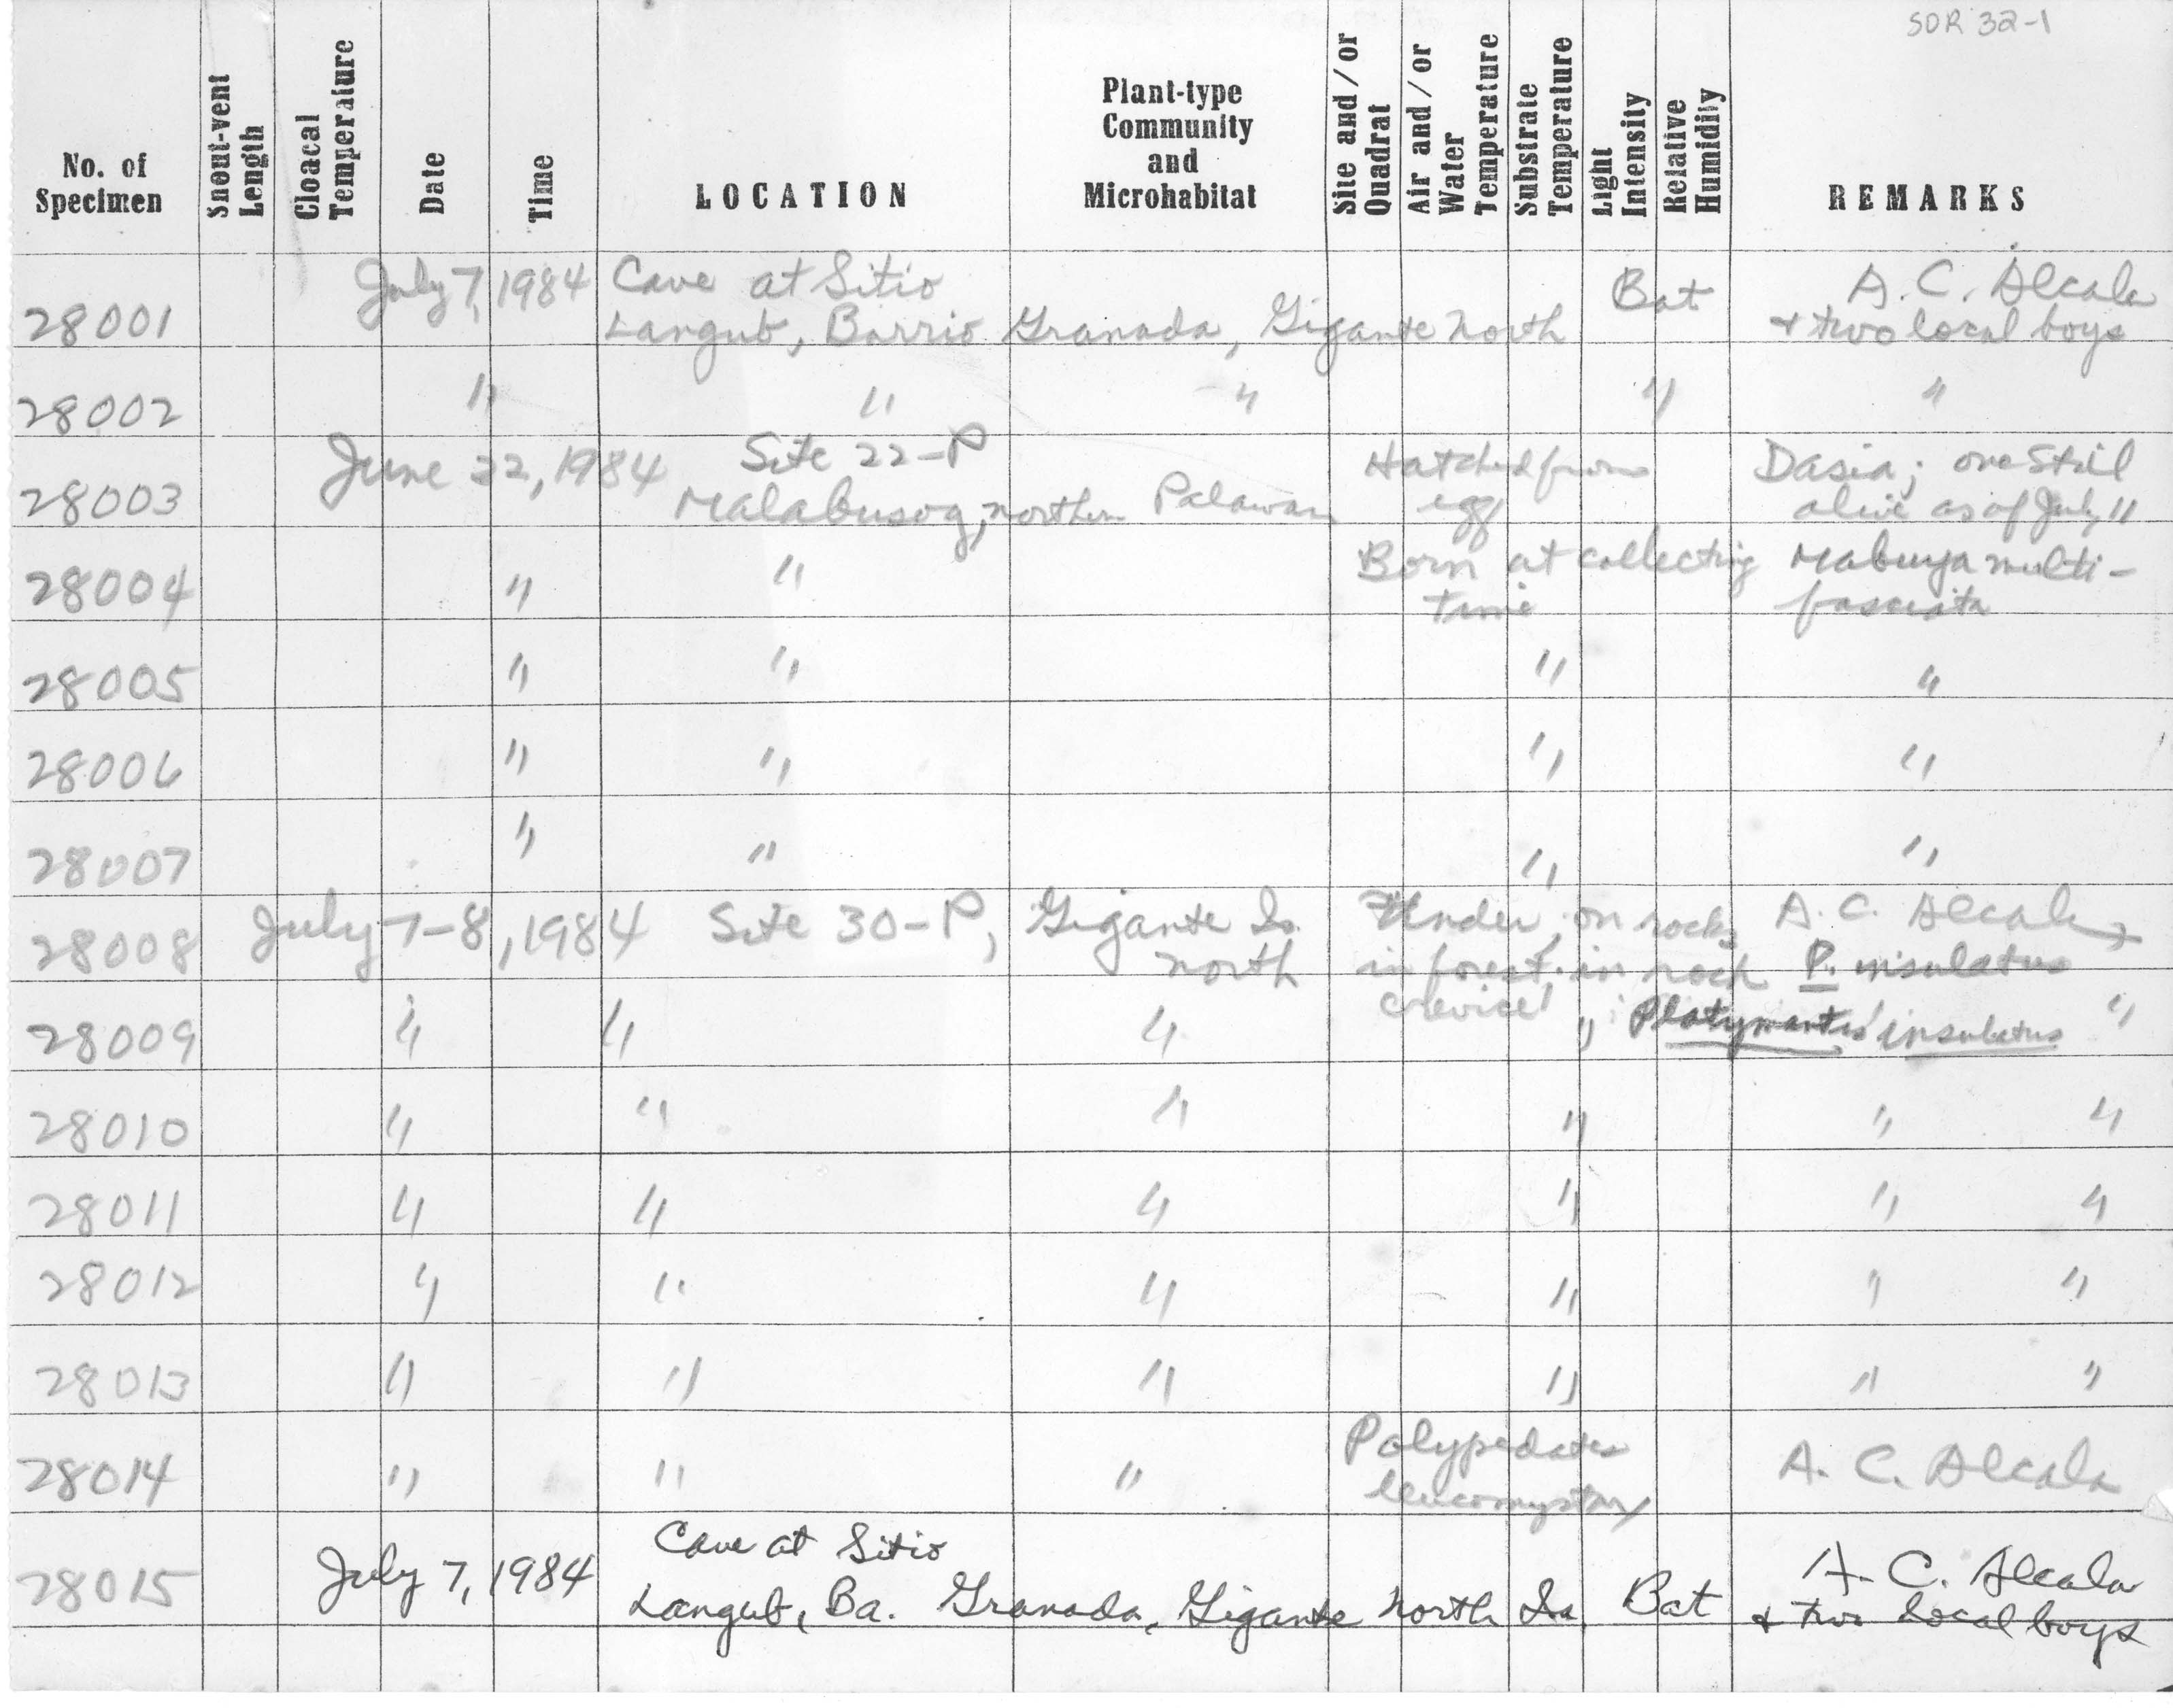 SDR 32-1
No. of Specimen
Snout-vent Length
Cloacal Temperature
Date
Time
LOCATION
Plant-type Community and Microhabitat
Site and/or Quadrat
Air and/or Water Temperature
Substrate Temperature
Light Intensity
Relative Humidity
REMARKS
28001 July 7, 1984 Cave at Sitio Bat A. C. Alcala
Langub, Barrio Granada, Gigante North & two local boys
28002 " " " " "
28003 June 22, 1984 Site 22-P Hatched from Dasia; one still
Malabusog, northern Palawan egg alive as of July 11
28004 " " Born at collecting Mabuya multi-
time fasciata
28005 " " " "
28006 " " " "
28007 " " " "
28008 July 7-8, 1984 Site 30-P, Gigante Is. Under, on rocks A. C. Alcala
North in forest; in rock P. insulatus
crevice
28009 " " " " Platymantis insulatus "
28010 " " " " " "
28011 " " " " " "
28012 " " " " " "
28013 " " " " " "
28014 " " " Polypedates A. C. Alcala
leucomystax
28015 July 7, 1984 Cave at Sitio Bat A. C. Alcala
Langub, Ba. Granada, Gigante North Is. & two local boys